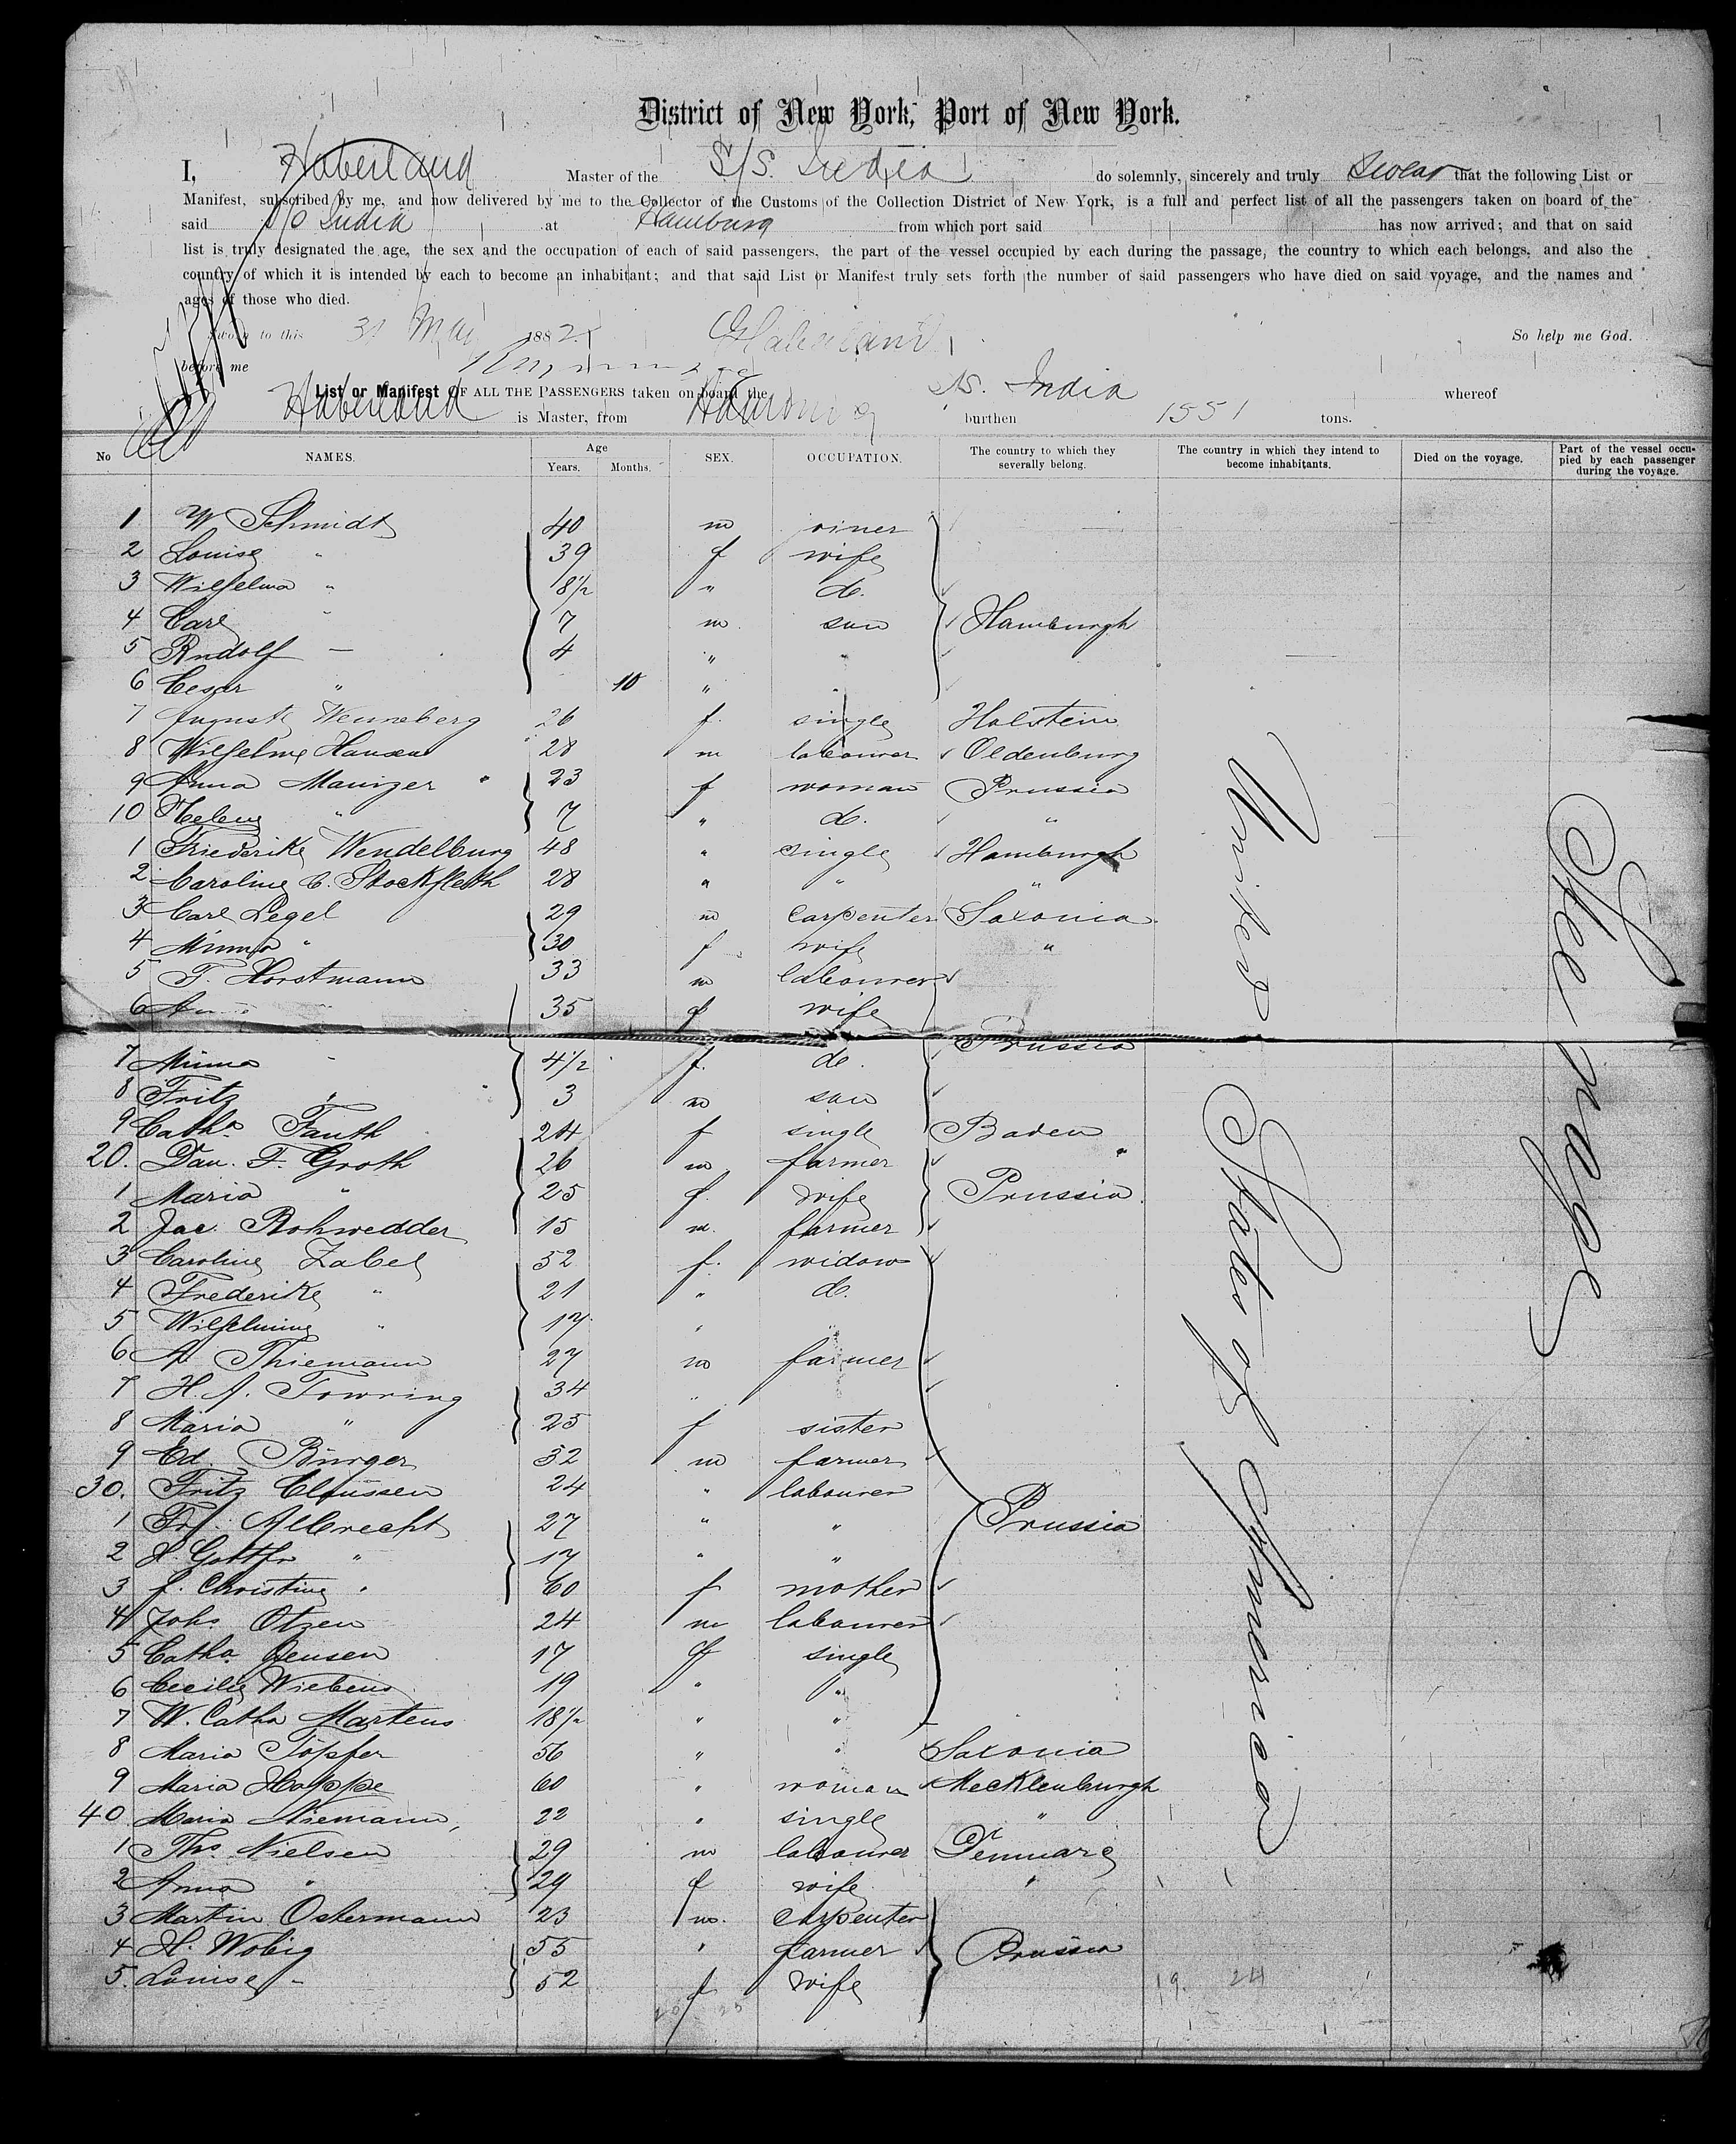 District of New York, Port of New York.
I, Haberland Master of the S/S. India do solemnly, sincerely and truly swear that the following List or
Manifest, subscribed by me, and now delivered by me to the Collector of the Customs of the Collection District of New York, is a full and perfect list of all the passengers taken on board of the
said S/S India at Hamburg from which port said has now arrived; and that on said
list is truly designated the age, the sex and the occupation of each of said passengers, the part of the vessel occupied by each during the passage, the country to which each belongs, and also the
country of which it is intended by each to become an inhabitant; and that said List or Manifest truly sets forth the number of said passengers who have died on said voyage, and the names and
ages of those who died.
Sworn to this 31 May 1882. Haberland So help me God.
before me
List or Manifest OF ALL THE PASSENGERS taken on board the SS. India whereof
Haberland is Master, from Hamburg burthen 1551 tons.
No NAMES. Age Years. Months. SEX. OCCUPATION. The country to which they severally belong. The country in which they intend to become inhabitants. Died on the voyage. Part of the vessel occupied by each passenger during the voyage.
1 W Schmidt 40 m joiner
2 Louise " 39 f wife
3 Wilhelma " 8 1/2 " do.
4 Carl " 7 m son Hamburgh
5 Rudolf — 4 "
6 Cesar " 10 " "
7 Auguste Wenneberg 26 f. single Holstein
8 Wilhelm Hansen 28 m labourer Oldenburg
9 Anna Mainzer 23 f woman Prussia
10 Helene " 7 " do. "
1 Friederike Wendelburg 48 " single Hamburgh
2 Caroline C. Stockfleth 28 " " "
3 Carl Legel 29 m carpenter Saxonia
4 Minna " 30 f wife "
5 F. Horstmann 33 m labourer
6 35 f wife
Prussia
7 Minna 4 1/2 f. do.
8 Fritz " 3 m son
9 Catha Fauth 24 f single Baden
20. Dan. F. Groth 26 m farmer "
1 Maria " 25 f. wife Prussia
2 Jac. Rohwedder 15 m. farmer
3 Caroline Zabel 52 f. widow
4 Frederike " 21 " do.
5 Wilhelmine " 17 " "
6 A. Thiemann 27 m farmer
7 H. J. Towring 34 "
8 Maria " 25 f sister
9 Ed. Bürger 32 m farmer
30. Fritz Claussen 24 " labourer
1 Albrecht 27 " " Prussia
2 " 17 " "
3 Christine " 60 f mother
4 Johs Otzen 24 m labourer
5 Catha Jensen 17 f single
6 Cecilie Wiebens 19 " "
7 W. Catha Martens 18 1/2 " "
8 Maria Töpfer 56 " " Saxonia
9 Maria Hoppe 60 " woman Mecklenburgh
40. Maria Niemann 22 " single "
1 Ths Nielsen 29 m labourer Denmark
2 Anna " 29 f wife "
3 Martin Ostermann 23 m. carpenter
4 H. Wobig 55 " farmer Prussia
5. Louise " 52 f wife
United States of America
Steerage
19. 24
20 25